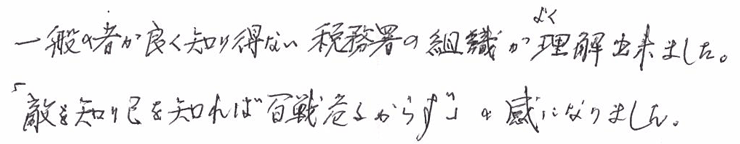 一般の者が良く知り得ない税務署の組織がよく理解出来ました。
「敵を知り己を知れば百戦危うからず」の感になりました。